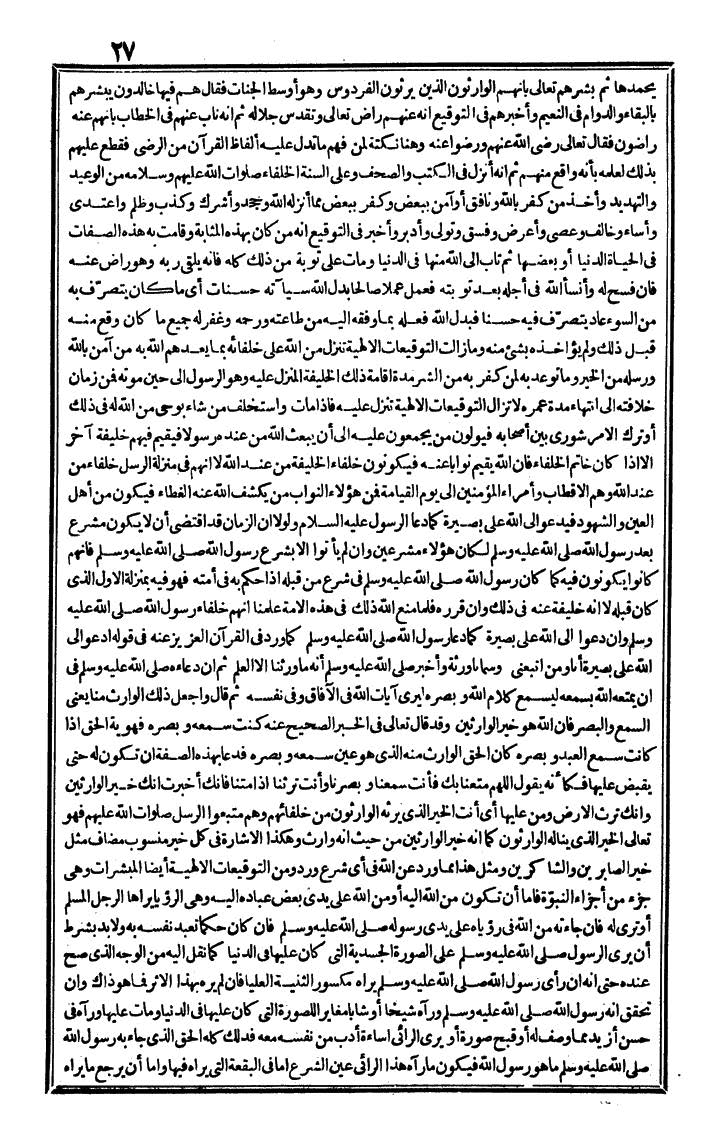 ٢٧
يحمدها ثم بشرهم تعالى بانهم الوارثون الذين يرثون الفردوس وهو أوسط الجنات فقال هم فيها خالدون يبشرهم
بالبقاء والدوام فى النعيم وأخبرهم فى التوقيع انه عنهم راض تعالى وتقدس جلاله ثم انه ناب عنهم فى الخطاب بانهم عنه
راضون فقال تعالى رضى الله عنهم ورضوا عنه وهنا نكتة لمن فهم ما تدل عليه ألفاظ القرآن من الرضى فقطع عليهم
بذلك لعلمه بأنه واقع منهم ثم انه أنزل فى الكتب والصحف وعلى السنة الخلفاء صلوات الله عليهم وسلامه من الوعيد
والتهديد وأخذ من كفر بالله ونافق أو آمن ببعض وكفر ببعض مما أنزله الله وجحد وأشرك وكذب وظلم واعتدى
وأساء وخالف وعصى وأعرض وفسق وتولى وأدبر وأخبر فى التوقيع انه من كان بهذه المثابة وقامت به هذه الصفات
فى الحياة الدنيا أو بعضها ثم تاب الى الله منها فى الدنيا ومات على توبة من ذلك كله فانه يلقى ربه وهو راض عنه
فان فسح له وأنسأ الله فى أجله بعد توبته فعمل عملا صالحا بدل الله سيآته حسنات أى ما كان يتصرّف به
من السوء عاد يتصرّف فيه حسنا فبدل الله فعله بما وفقه اليه من طاعته ورحمه وغفر له جميع ما كان وقع منه
قبل ذلك ولم يؤاخذه بشئ منه وما زالت التوقيعات الالهية تنزل من الله على خلفائه بما يعدهم الله به من آمن بالله
ورسله من الخير وما توعد به لمن كفر به من الشر مدة اقامة ذلك الخليفة المنزل عليه وهو الرسول الى حين موته فن زمان
خلافته الى انتهاء مدة عمره لا تزال التوقيعات الالهية تنزل عليه فاذا مات واستخلف من شاء بوحى من الله له فى ذلك
أو ترك الامر شورى بين أصحابه فيولون من يجمعون عليه الى أن يبعث الله من عنده رسولا فيقيم فيهم خليفة آخر
الا اذا كان خاتم الخلفاء فان الله يقيم نوابا عنه فيكونون خلفاء الخليفة من عند الله لا انهم فى منزلة الرسل خلفاء من
عند الله وهم الاقطاب وأمراء المؤمنين الى يوم القيامة فن هؤلاء النواب من يكشف الله عنه الغطاء فيكون من أهل
العين والشهود فيدعو الى الله على بصيرة كما دعا الرسول عليه السلام ولولا ان الزمان قد اقتضى أن لا يكون مشرع
بعد رسول الله صلى الله عليه وسلم لكان هؤلاء مشرعين وان لم يأتوا الا بشرع رسول الله صلى الله عليه وسلم فانهم
كانوا يكونون فيه كما كان رسول الله صلى الله عليه وسلم فى شرع من قبله اذا حكم به فى أمته فهو فيه بمنزلة الاول الذى
كان قبله لا انه خليفة عنه فى ذلك وان قرره فلما منع الله ذلك فى هذه الامة علمنا انهم خلفاء رسول الله صلى الله عليه
وسلم وان دعوا الى الله على بصيرة كما دعا رسول الله صلى الله عليه وسلم كما ورد فى القرآن العزيز عنه فى قوله ادعو الى
الله على بصيرة أنا ومن اتبعنى وسما ورثة وأخبر صلى الله عليه وسلم أنه ما ورثنا الا العلم ثم ان دعاءه صلى الله عليه وسلم فى
ان يمتعه الله بسمعه ليسمع كلام الله وبصره ليرى آيات الله فى الآفاق وفى نفسه ثم قال واجعل ذلك الوارث منا يعنى
السمع والبصر فان الله هو خير الوارثين وقد قال تعالى فى الخبر الصحيح عنه كنت سمعه وبصره فهوية الحق اذا
كانت سمع العبد وبصره كان الحق الوارث منه الذى هو عين سمعه وبصره فدعا بهذه الصفة ان تكون له حتى
يقبض عليها فكأنه يقول اللهم متعنا بك فأنت سمعنا وبصرنا وأنت ترثنا اذا متنا فانك أخبرت انك خير الوارثين
وانك ترث الارض ومن عليها أى أنت الخير الذى يرثه الوارثون من خلفائهم وهم متبعوا الرسل صلوات الله عليهم فهو
تعالى الخير الذى يناله الوارثون كما انه خير الوارثين من حيث انه وارث وهكذا الاشارة فى كل خير منسوب مضاف مثل
خير الصابرين والشاكرين ومثل هذا مما ورد عن الله فى أى شرع ورد ومن التوقيعات الالهية أيضا المبشرات وهى
جزء من أجزاء النبوّة فاما أن تكون من الله اليه أو من الله على يدى بعض عباده اليه وهى الرؤيا يراها الرجل المسلم
أو ترى له فان جاءته من الله فى رؤياه على يدى رسوله صلى الله عليه وسلم فان كان حكما تعبد نفسه به ولا بد بشرط
أن يرى الرسول صلى الله عليه وسلم على الصورة الجسدية التى كان عليها فى الدنيا كما نقل اليه من الوجه الذى صح
عنده حتى انه ان رأى رسول الله صلى الله عليه وسلم يراه مكسور الثنية العليا فان لم يره بهذا الاثر فاهو ذاك وان
تحقق انه رسول الله صلى الله عليه وسلم ورآه شيخا أو شابا مغاير اللصورة التى كان عليها فى الدنيا ومات عليها ورآه فى
حسن أزيد مما وصف له أو قبح صورة أو يرى الرائى اساءة أدب من نفسه معه فذلك كله الحق الذى جاء به رسول الله
صلى الله عليه وسلم ما هو رسول الله فيكون ما رآه هذا الرائى عين الشرع اما فى البقعة التى يراه فيها واما أن يرجع ما يراه